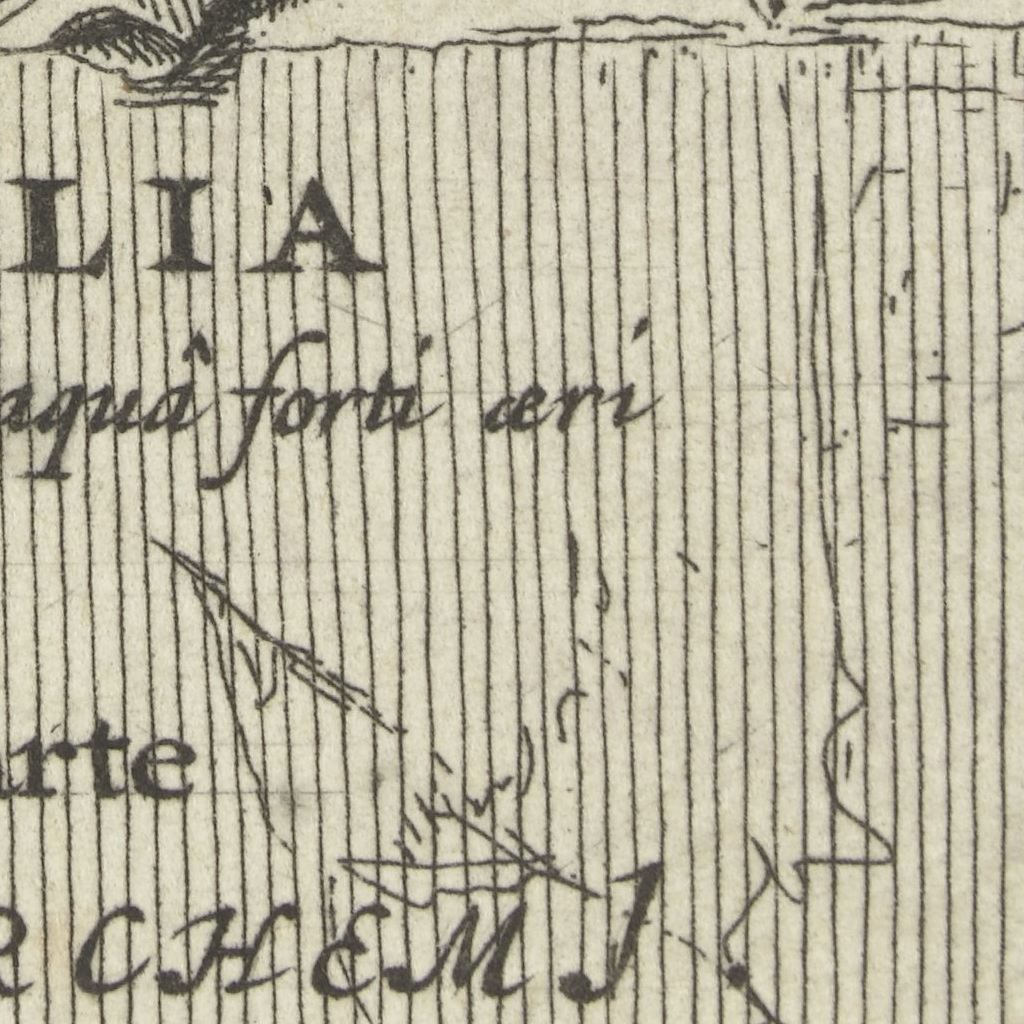 LIA
aquâ forti æri
arte
RCHEMJ